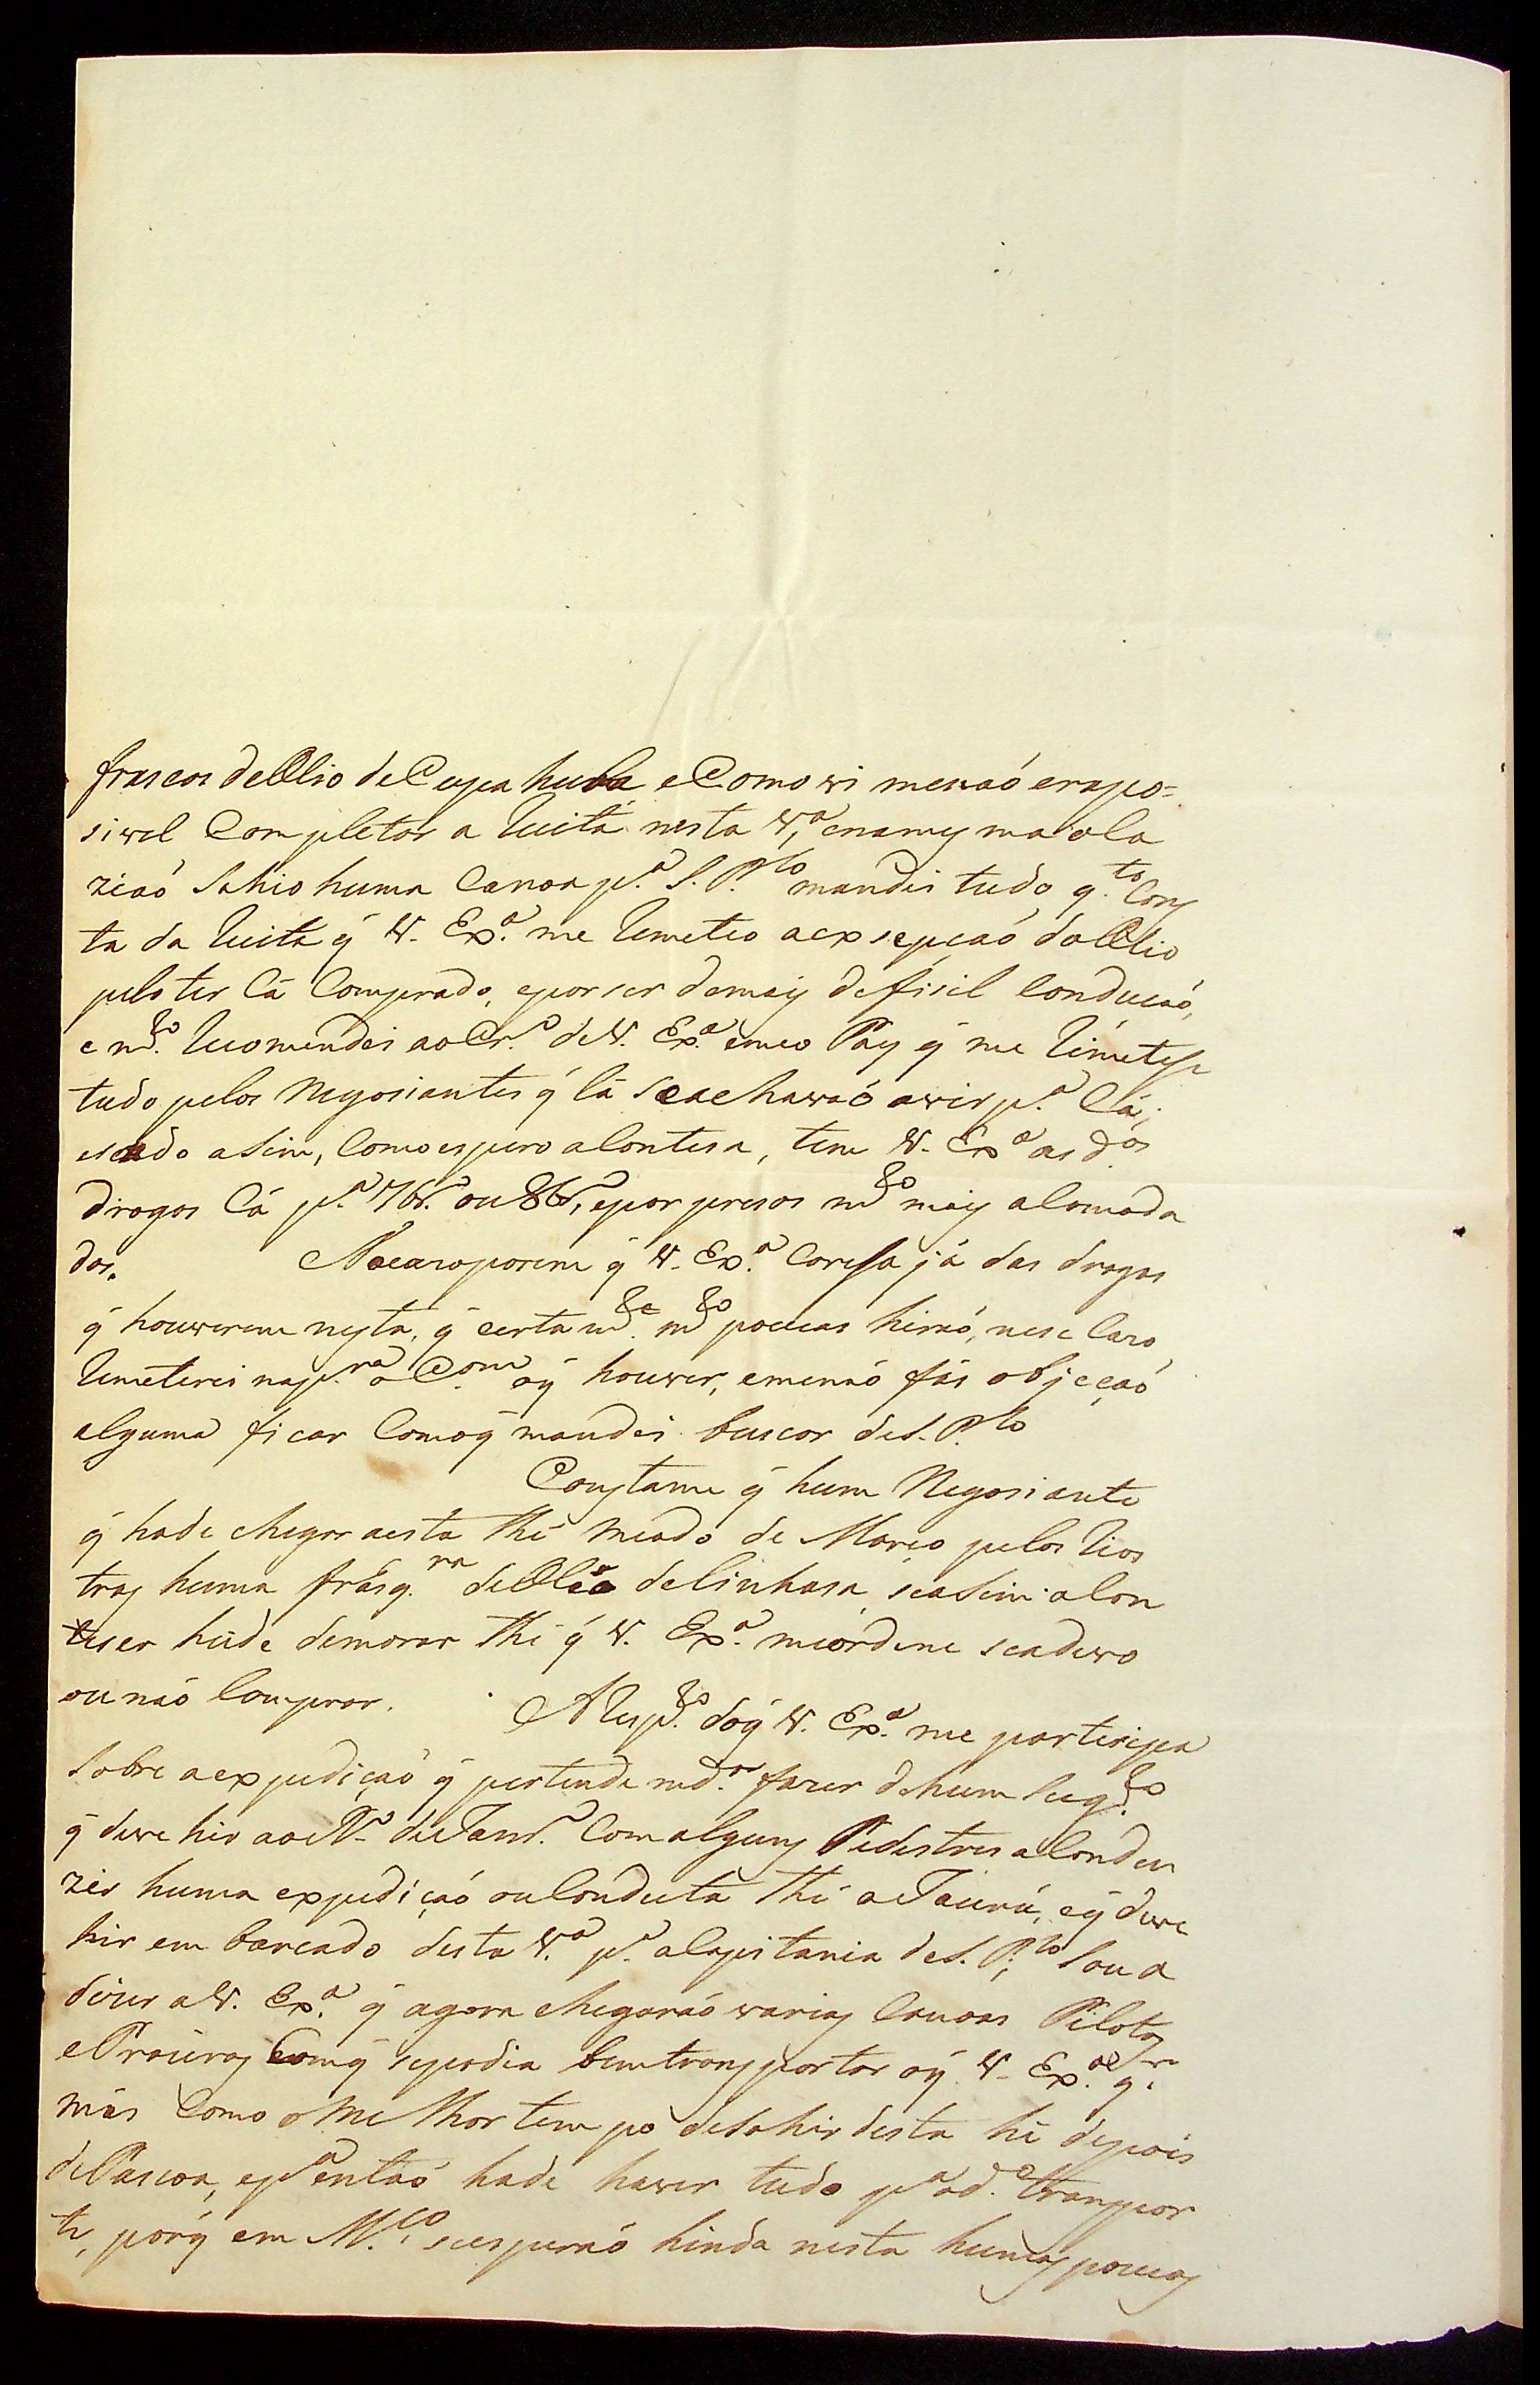 frascos de Olio de Cupahuba e Como vi me naó era po=
sivel Completar a Reseita nesta V.ª, e na mesma ola
ziaó Sahio huma Canoa p.ª S. P.lo mandei tudo q.to Cons
ta da Reseita q̃ V. Ex.ª me Remeteo a expsepçaó do Olio
pelo ter Cá Comprado, e por ser de mais defisil Conduçaó,
e m.to Recomendei ao Cr.º de V. Ex.ª e meo Pay q̃ me Remetese
tudo pelos Negosiantes q̃ lá se achavaó a vir p.ª Cá;
e sendo asim, Como espero aContesa, tem V. Ex.ª as d.as
drogas Cá p.ª Abr.º ou 8br.º, e por presos m.to mais aComoda
dos. No Caso porem q̃ V. Ex.ª Caresa já das drogas
q̃ houverem nesta, q̃ certam.te m.to poucas hiraó, nese Caso
Remeterei na p.ra Com.am o q̃ houver, e me naó fás objeçaó
alguma ficar Com o q̃ mandei buscar de S. P.lo
Constame q̃ hum Negosiante
q̃ hade chegar a esta thé meado de Março pelos Rios
tras huma frásq.ra de Olio de linhasa, se asim aCon
teser hade demorar thé q̃ V. Ex.ª me órdene se a devo
ou naó Comprar. A Resp.to do q̃ V. Ex.ª me partisipa
Sobre a expediçaó q̃ pertende m.dar fazer de hum Sug.to
q̃ deve hir ao R.º de Janr.º Com alguns Pedestres a Condu
zir huma expediçaó ou Conduta thé a Taurú, e q̃ deve
hir embarcado desta V.ª p.ª a Capitania de S. P.lo, Sou a
dizer a V. Ex.ª q̃ agora chegaraó varias Canoas Pilotos
e Proeiros Com q̃ se podia bem transportar o q̃ V. Ex.ª q.r
más Como o Melhor tempo de Sahir desta hé depois
de Pascoa, e p.ª entaó hade haver tudo p.ª o d.º transpor
te, porq̃ em M.ço se esperaó hinda nesta humas poucas